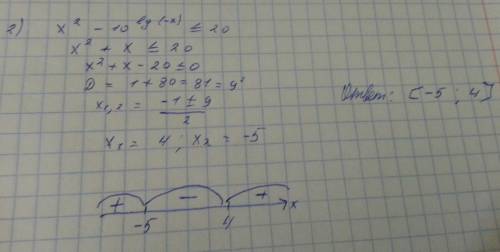 2) x² - 10^lg(-x) ≤ 20
x² + x ≤ 20
x² + x - 20 ≤ 0
D = 1 + 80 = 81 = 9²
x₁,₂ = (-1 ± 9)/2
x₁ = 4 ; x₂ = -5
+ - + x
-5 4
Ответ: [-5 ; 4]